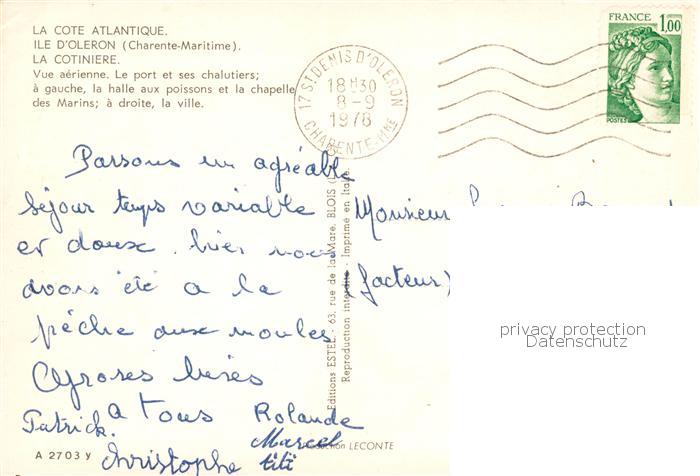 LA COTE ATLANTIQUE.
ILE D'OLERON (Charente-Maritime).
LA COTINIERE.
Vue aérienne. Le port et ses chalutiers;
à gauche, la halle aux poissons et la chapelle
des Marins; à droite, la ville.
17 ST DENIS D'OLERON
18H30
8-9
1978
CHARENTE-Mme
FRANCE
1,00
POSTES
Passons un agréable
séjour temps variable
et doux. hier nous
avons été a la
pêche aux moules
Grosses bises
a tous
Rolande
Patrick.
Marcel
Christophe
titi
Monsieur
(facteur)
Editions ESTEL - 63, rue de la Mare, BLOIS
Reproduction interdite - Imprimé en Italie
LECONTE
A 2703 y
privacy protection
Datenschutz